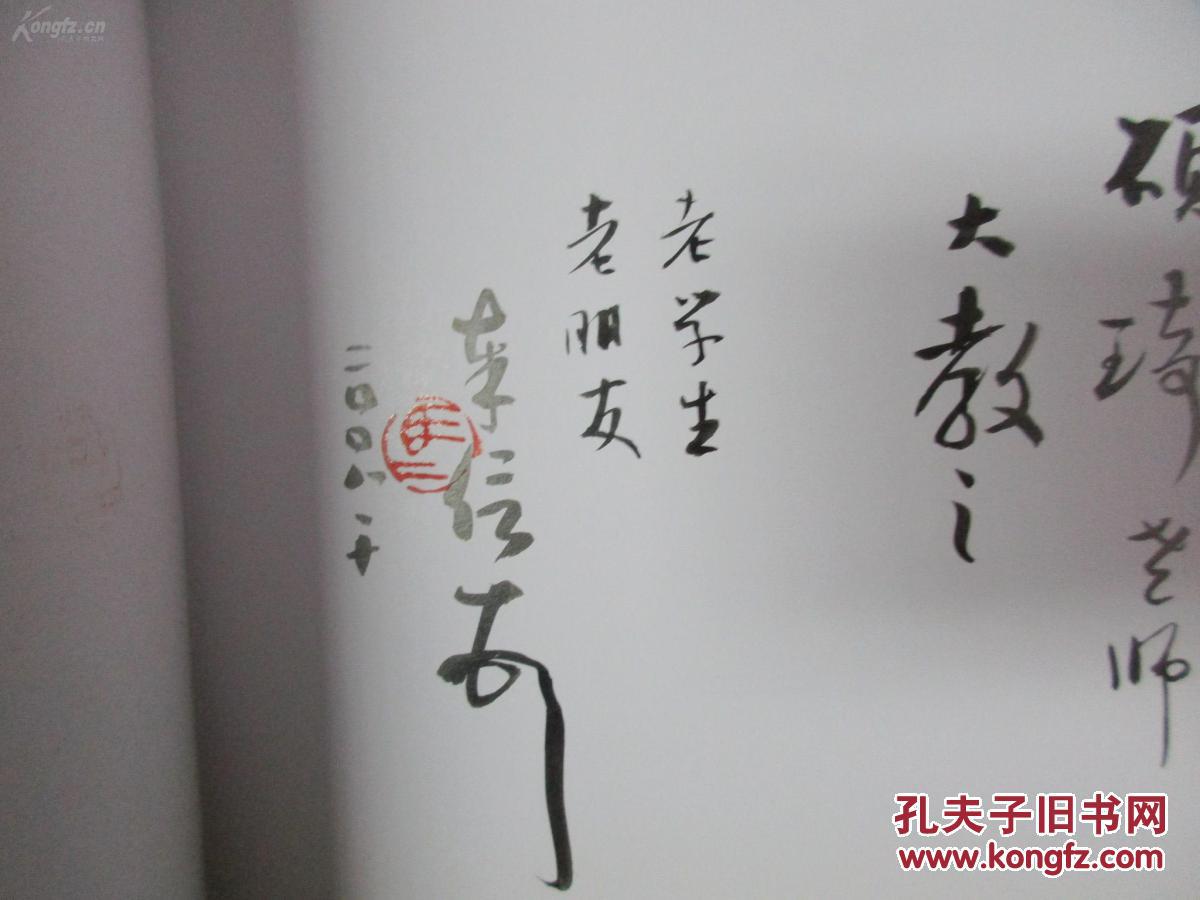 硕琦老师
大教之
老学生
老朋友
二〇〇六.二十
Kongfz.cn
孔夫子旧书网
www.kongfz.com